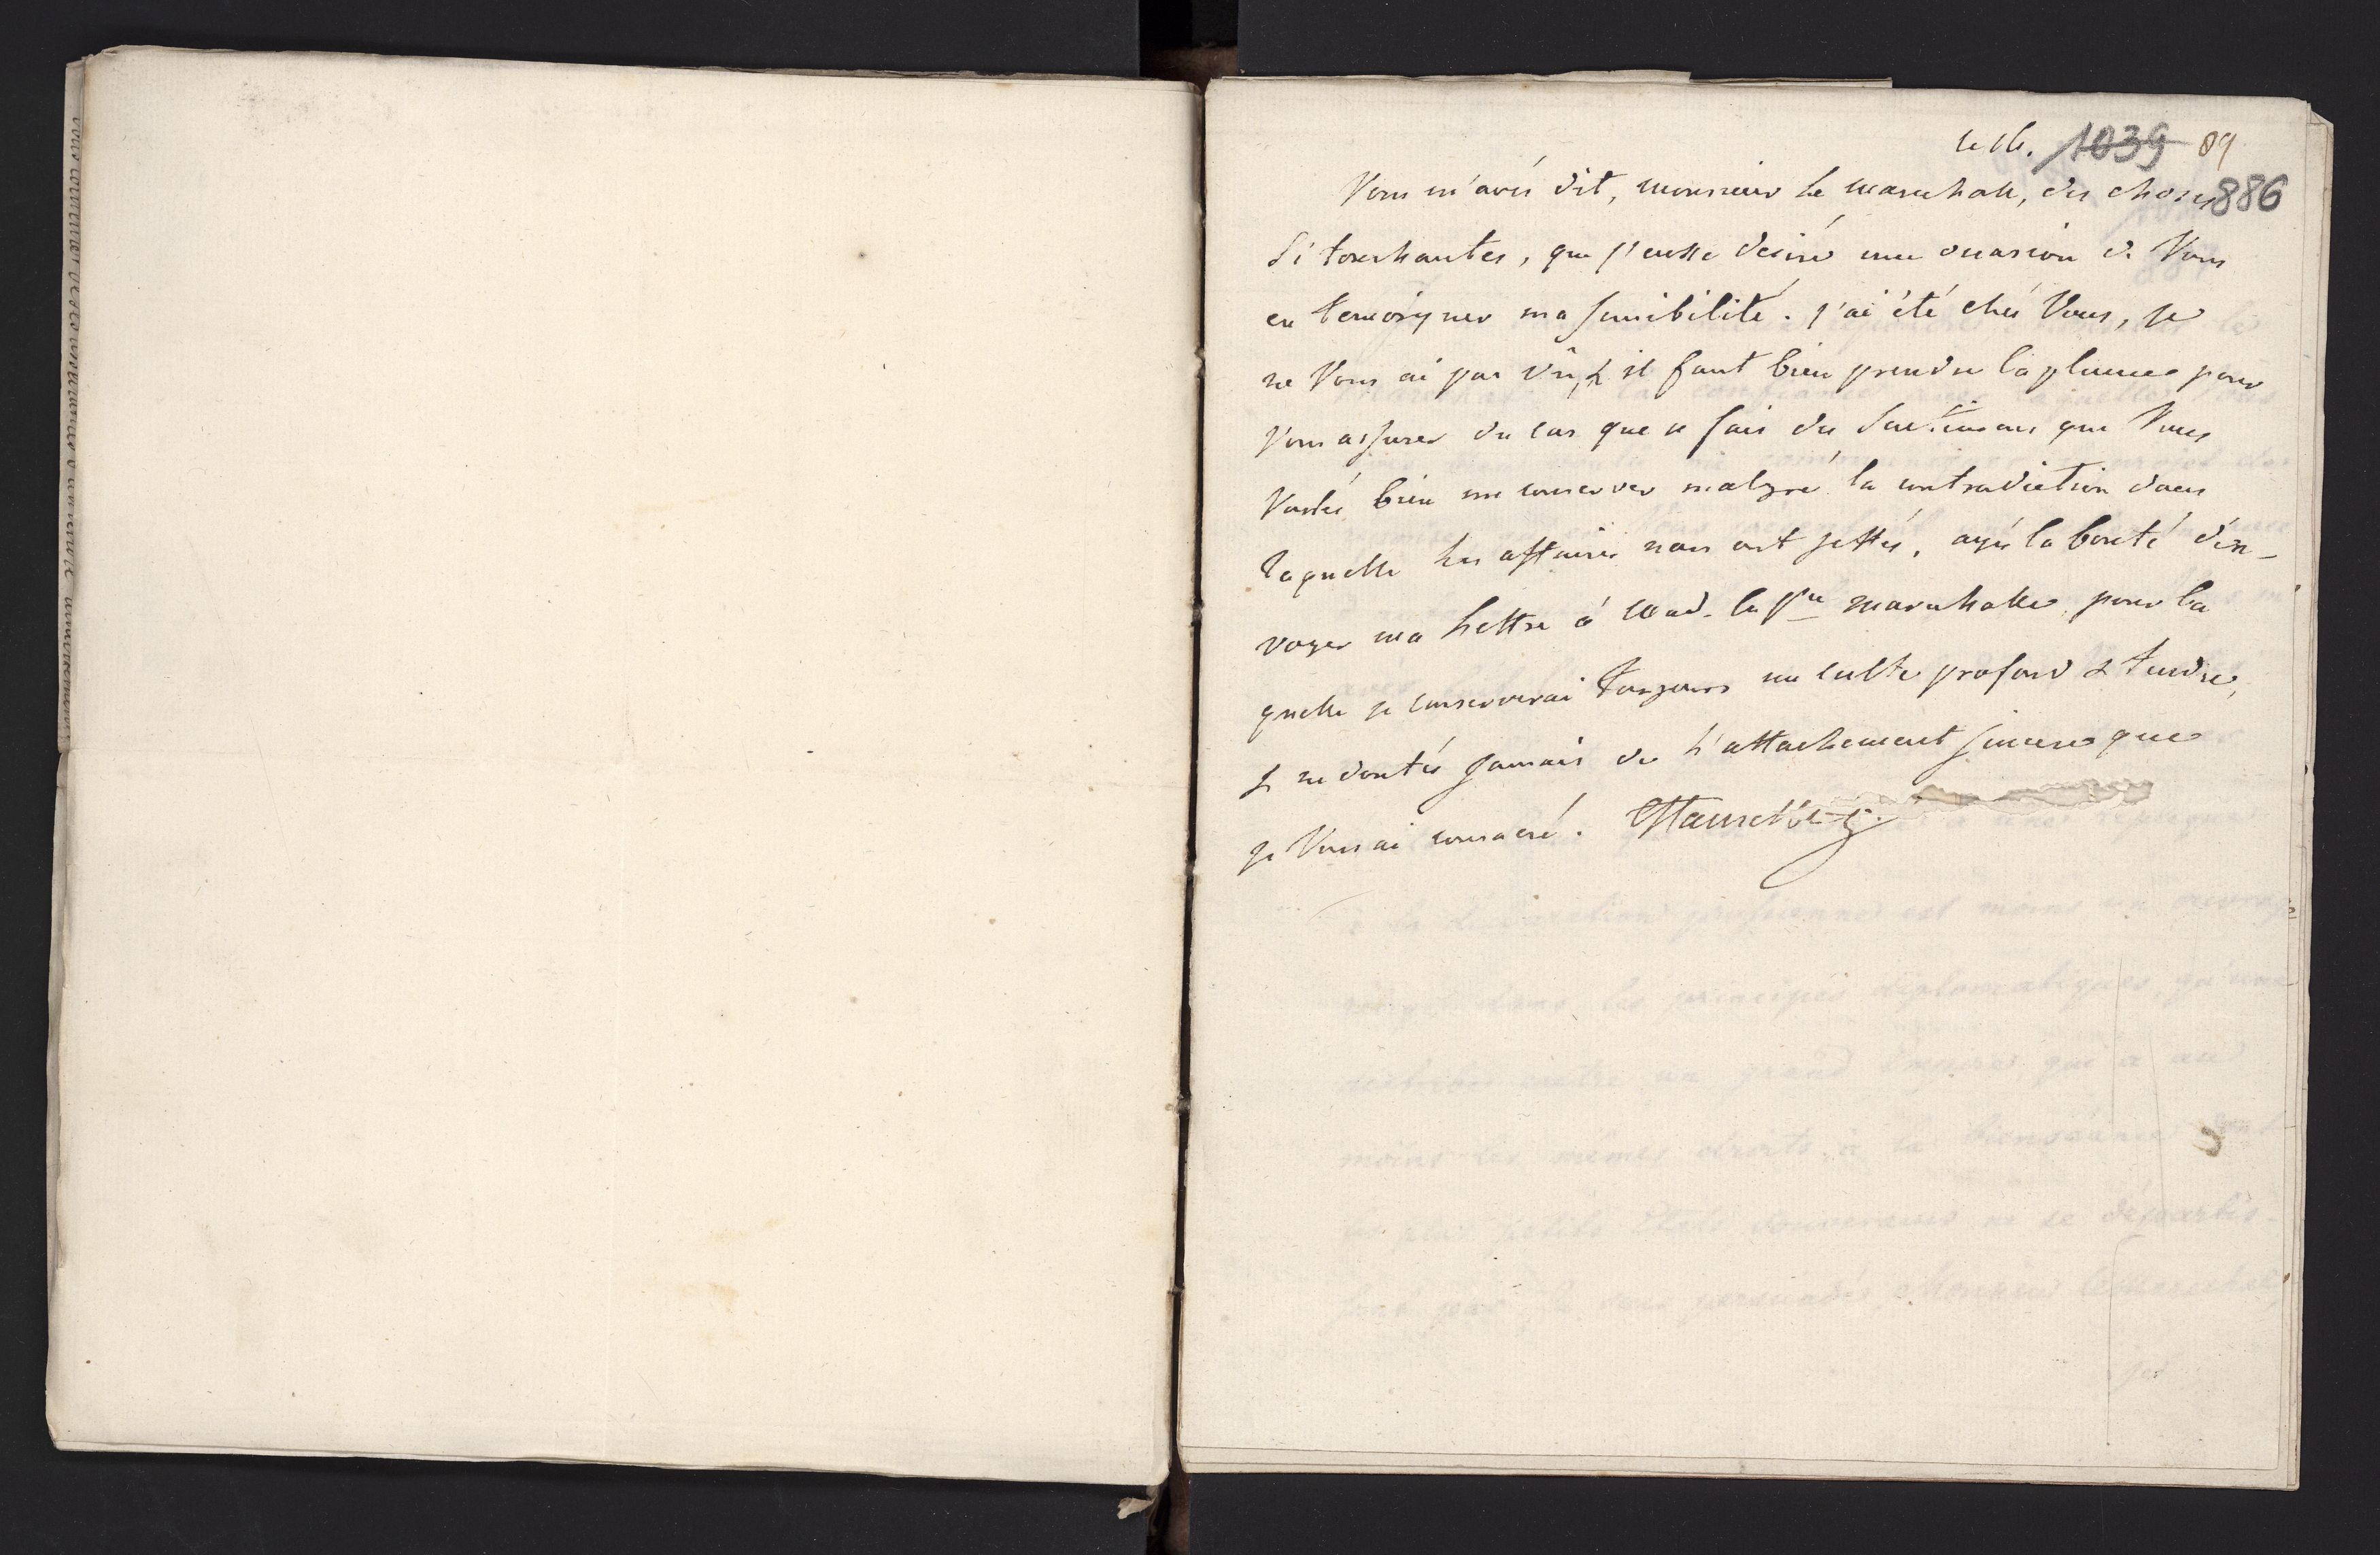 le 16. 1039 89
Vous m'avés dit, monsieur Le marechall, des choses 886
Si touchantes, que j'eusse desiré une occasion de Vous
en temoigner ma sensibilité. j'ai été chés Vous, je
ne Vous ai pas vû, & il faut bien prendre la plume pour
Vous assurer du cas que je fais des sentimens que Vous
Voulés bien me conserver malgré la contradiction dans
laquelle les affaires nous ont jettés, ayés la bonté d'en-
voyer ma Lettre à Mad. la marechalle pour la
quelle je conserverai toujours un culte profond & tendre,
& ne doutés jamais de L'attachement sincere que
je Vous ai consacré.